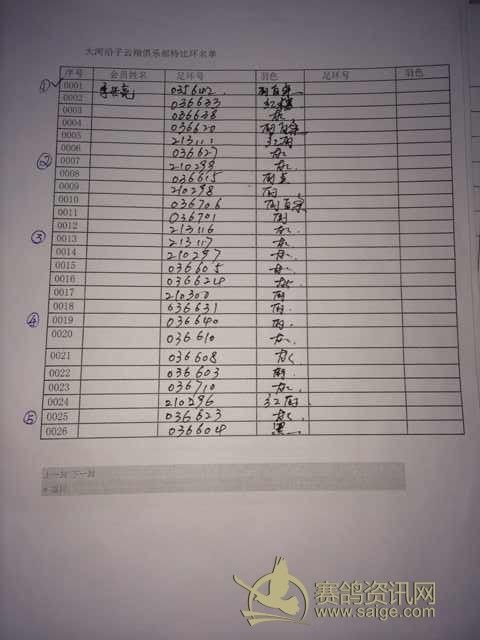 大河沿子云翔俱乐部特比环名单
序号 会员姓名 足环号 羽色 足环号 羽色
① 0001 035602 雨白条
0002 036633 红楼
0003 036638 灰
0004 036620 雨白条
0005 213111 红雨
0006 036627 灰
② 0007 210299 灰
0008 036615 雨点
0009 210298 雨
0010 036706 雨白条
0011 036701 雨
0012 213116 灰
③ 0013 213117 灰
0014 210297 灰
0015 036605 灰
0016 036624 灰
0017 210300 雨
0018 036631 雨
④ 0019 036640 雨
0020 036610 灰
0021 036608 灰
0022 036603 雨
0023 036710 灰
0024 210296 红雨
⑤ 0025 036623 灰
0026 036604 黑
上一封 下一封
返回
赛鸽资讯网
www.saige.com